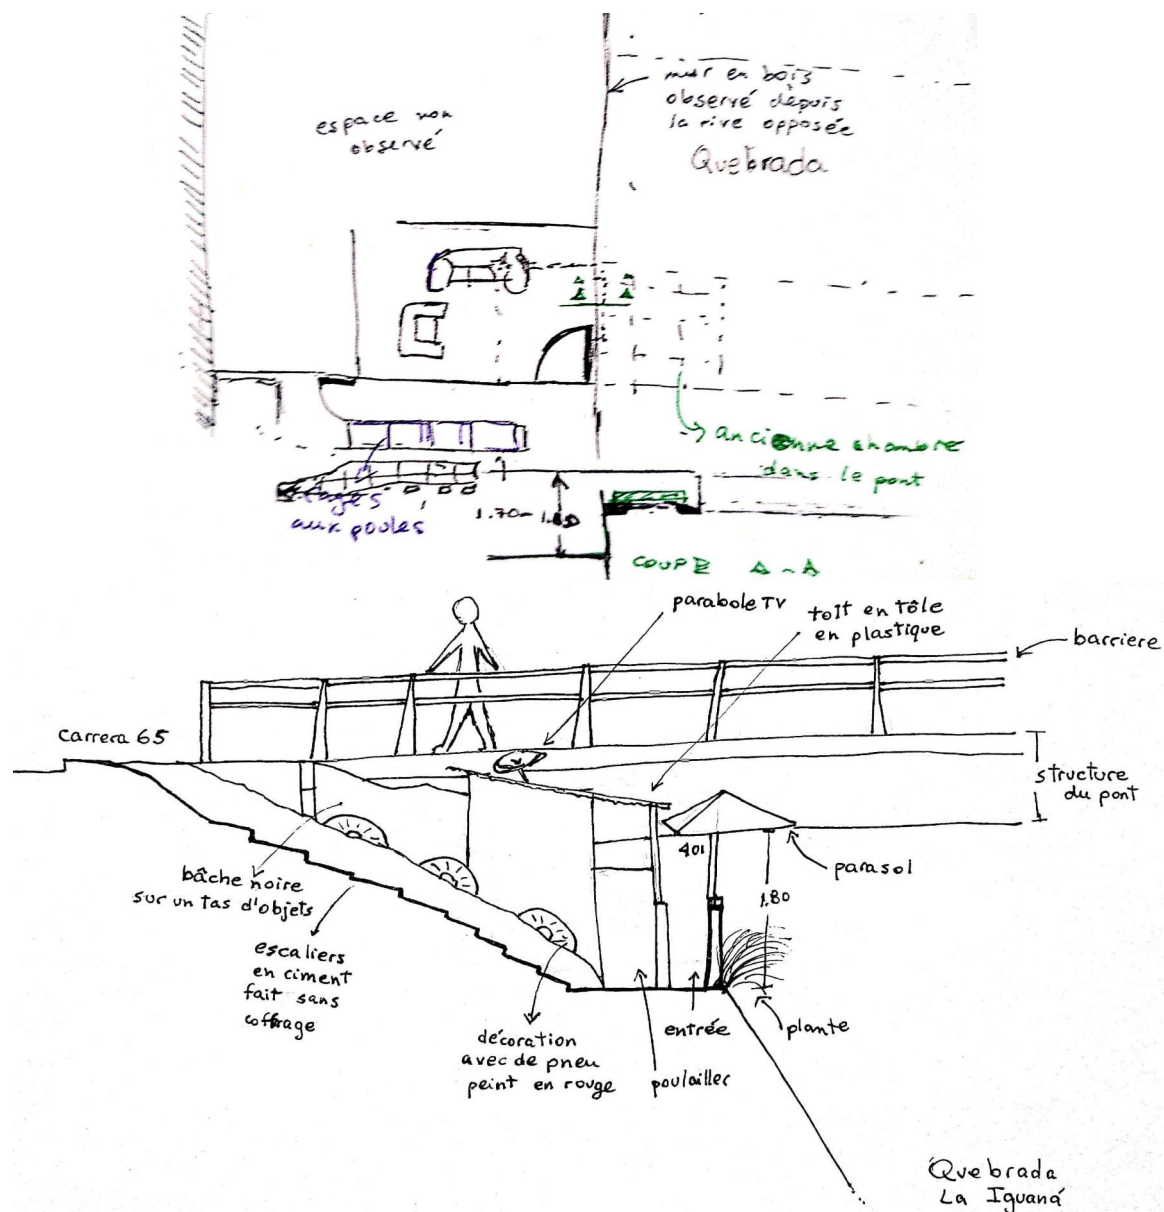 espace non
observé
mur en bois
observé depuis
la rive opposée
Quebrada
A A
A A
ancienne chambre
dans le pont
aux poules
COUPE A-A
parabole TV
toit en tôle
en plastique
barriere
carrera 65
structure
du pont
bâche noire
sur un tas d'objets
401
parasol
1.80
escaliers
en ciment
fait sans
coffrage
décoration
avec de pneu
peint en rouge
poulailler
entrée
plante
Quebrada
La Iguaná